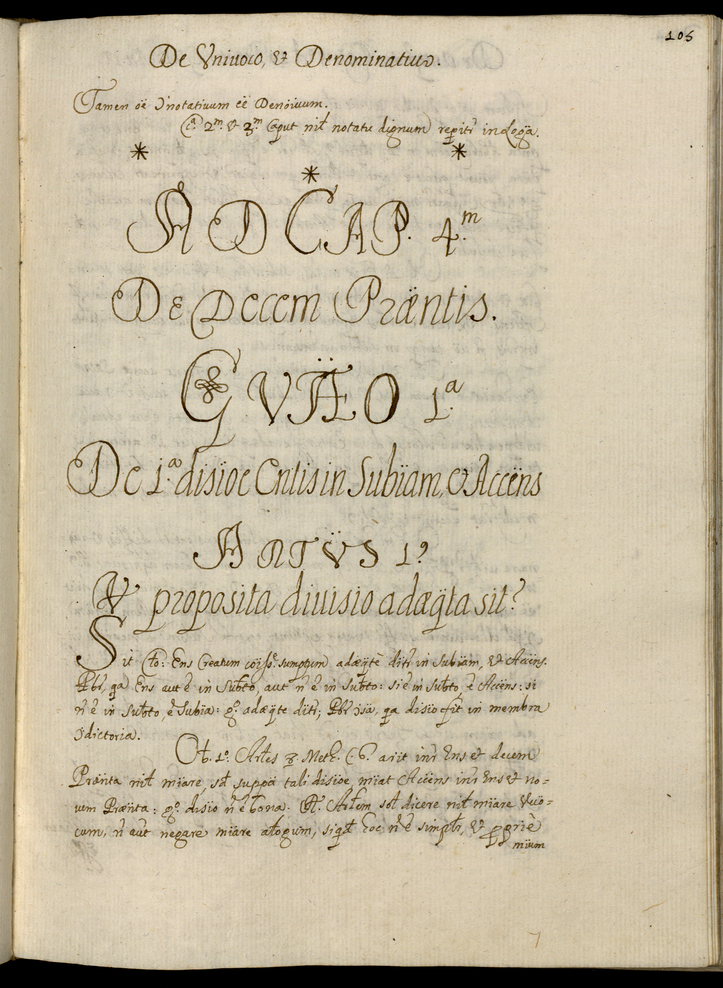 105
De Vniuoco, & Denominatiuo.
Tamen oë Ɔnotatiuum eë Denoiuum.
2ᵐ & 3ᵐ Caput nil notatu dignum repitʳ in Loga.
* *
*
AD CAP. 4.ᵐ
De Decem Præntis.
QVÆO 1.ª
De 1.ª disioe Entis in Subiam, & Accens
ARTVS 1.º
proposita diuisio adæq̃ta sit?
Sit Ens Creatum sumptum adæq̃tè in Subiam, & Accens.
Pbr, qa Ens aut ē in Subto, aut n̄ ē in Subto: si ē in Subto, ē Accens: si
n̄ ē in Subto, ē Subia: gº adæq̃te ditr; Pbr qa disio fit in membra
Ɔdictoria.
Ob. 1.º Arles 3. Meth. C. 6. ait inr Ens et decem
Prænta nil miare, sd tali disioe, miat Accens inr Ens & no=
uem Prænta: gº. disio n̄ ē bona. Arlem dicere nil miare Vuo=
cum, n̄ aut negare miare alogum, hoc n̄ ē simplr, & prie
mium